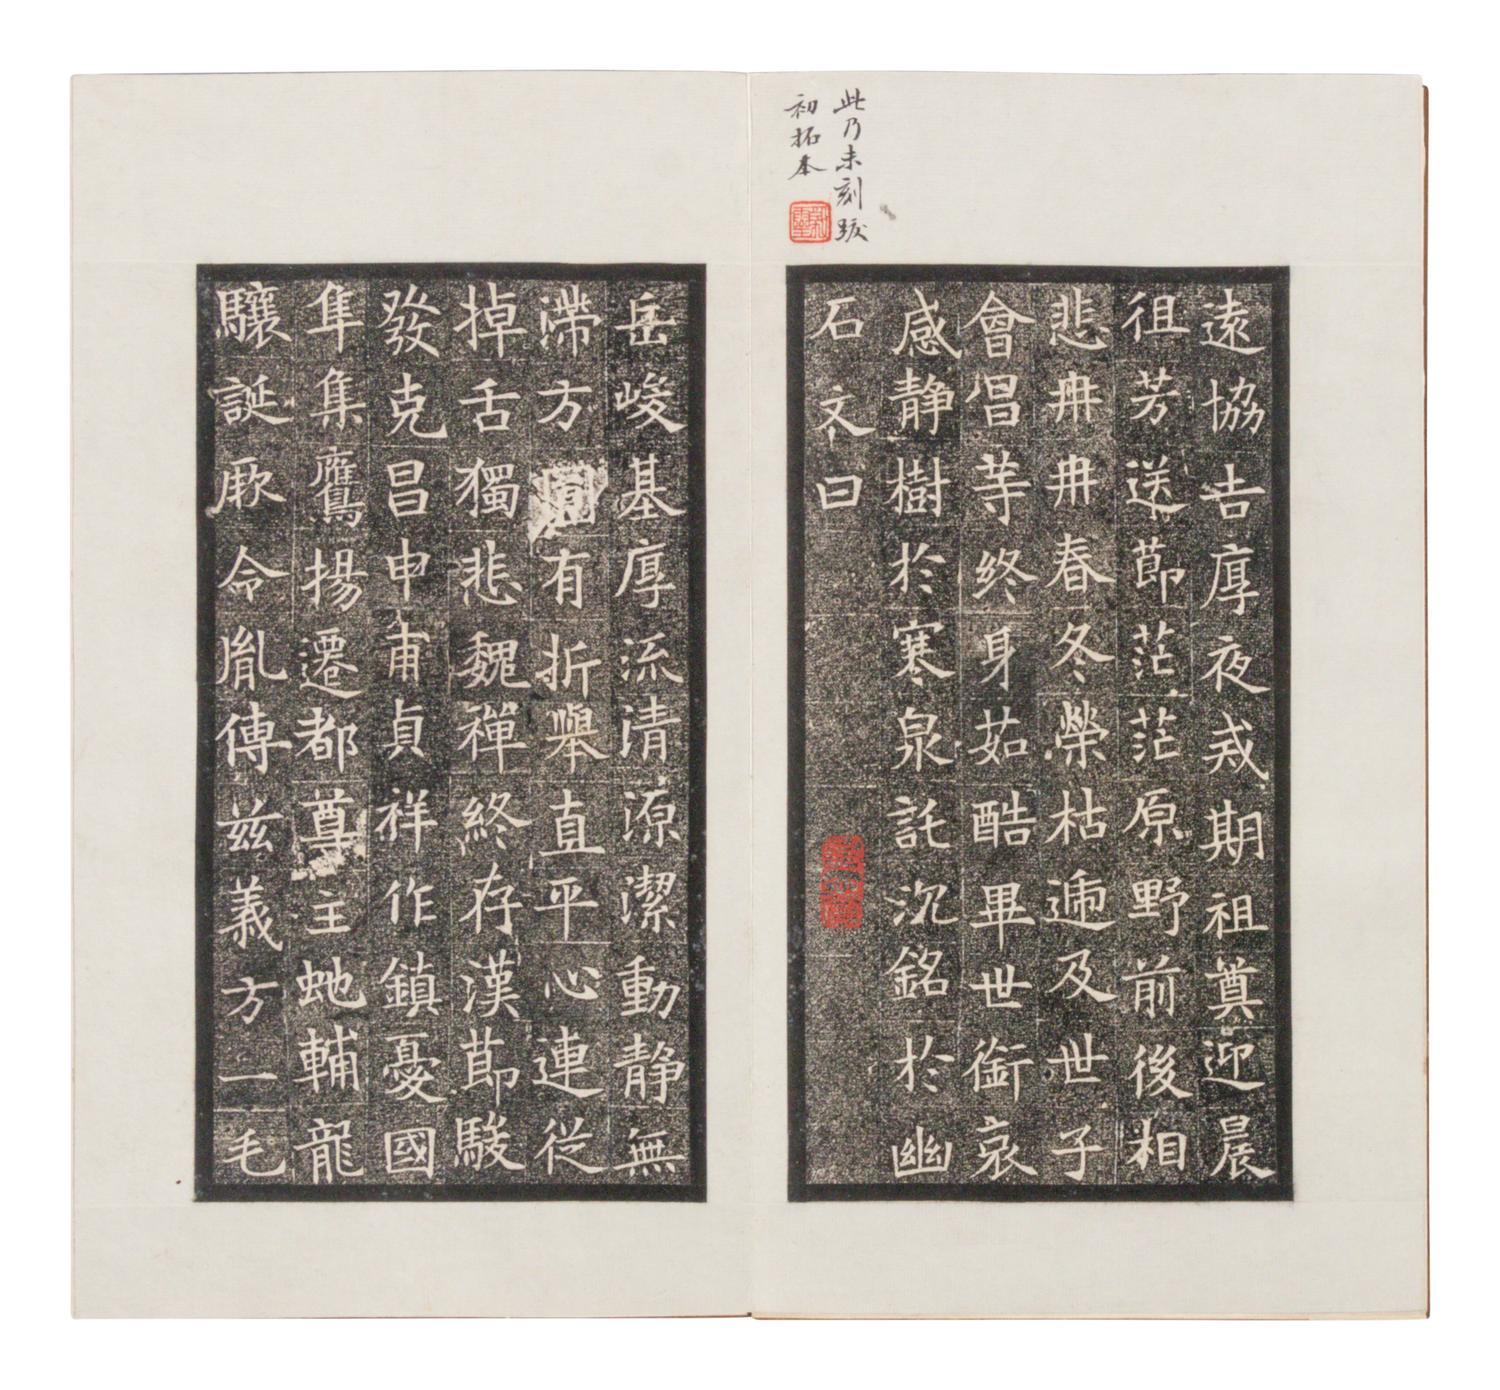 此乃未刻跋
初拓本
遠協吉厚夜戒期祖奠迎晨
徂芳送節茫茫原野前後相
悲冉冉春冬榮枯遞及世子
會昌等終身茹酷畢世銜哀
感静樹於寒泉託沉銘於幽
石文曰
岳峻基厚流清源潔動静無
滯方圓有折舉直平心連從
掉舌獨悲魏禪終存漢節駿
發克昌申甫貞祥作鎮憂國
隼集鷹揚遷都尊主虵輔龍
驤誕厥令胤傳兹義方一毛